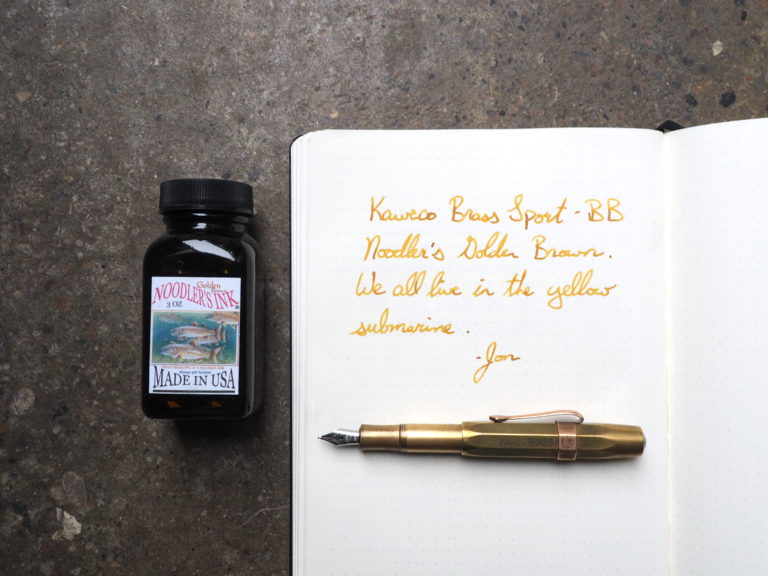 Golden
Brown
NOODLER'S INK
3 OZ
MADE IN USA
Kaweco Brass Sport - BB
Noodler's Golden Brown.
We all live in the yellow
submarine.
-Jon
KAWECO BRASS